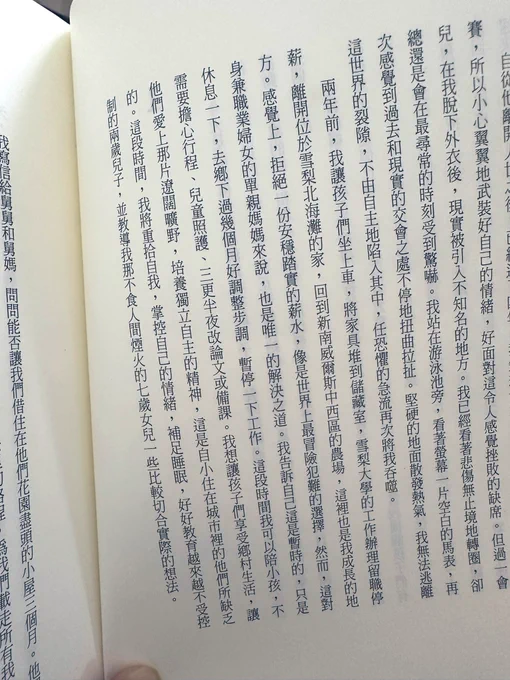 自從離開
賽，所以小心翼翼地武裝好自己的情緒，好面對這令人感覺挫敗的缺席。但過一會
兒，在我脫下外衣後，現實被引入不知名的地方。我已經看著悲傷無止境地轉圈，卻
總還是會在最尋常的時刻受到驚嚇。我站在游泳池旁，看著螢幕一片空白的馬表，再
次感覺到過去和現實的交會之處不停地扭曲拉扯。堅硬的地面散發熱氣，我無法逃離
這世界的裂隙，不由自主地陷入其中，任恐懼的急流再次將我吞噬。
兩年前，我讓孩子們坐上車，將家具堆到儲藏室，雪梨大學的工作辦理留職停
薪，離開位於雪梨北海灘的家，回到新南威爾斯中西區的農場，這裡也是我成長的地
方。感覺上，拒絕一份安穩踏實的薪水，像是世界上最冒險犯難的選擇，然而，這對
身兼職業婦女的單親媽媽來說，也是唯一的解決之道。我告訴自己這是暫時的，只是
休息一下，去鄉下過幾個月好調整步調，暫停一下工作。這段時間我可以陪小孩，不
需要擔心行程、兒童照護、三更半夜改論文或備課。我想讓孩子們享受鄉村生活，讓
他們愛上那片遼闊曠野，培養獨立自主的精神，這是自小住在城市裡的他們所缺乏
的。這段時間，我將重拾自我，掌控自己的情緒，補足睡眠，好好教育越來越不受控
制的兩歲兒子，並教導我那不食人間煙火的七歲女兒一些比較切合實際的想法。
我寫信給舅舅和舅媽，問問能否讓我們借住在他們花園盡頭的小屋三個月。他
為我們載走所有我